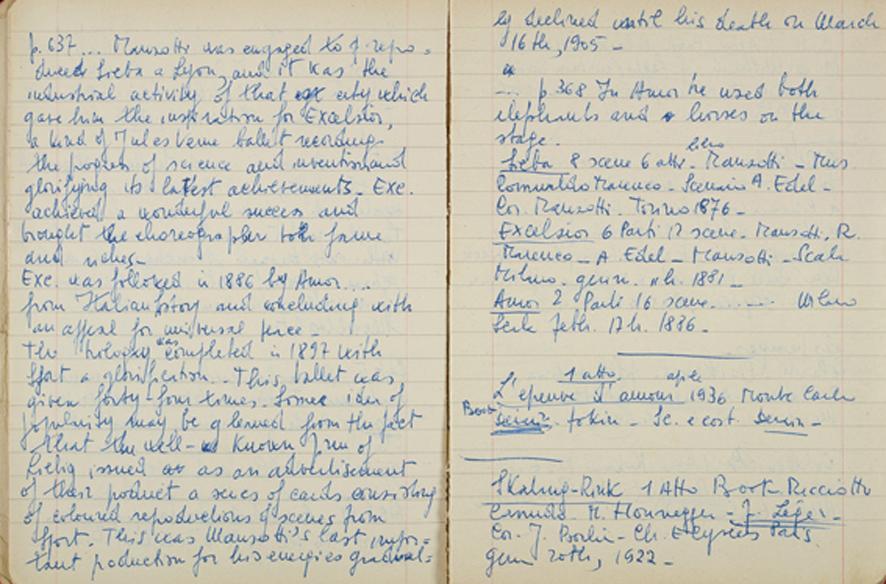 p. 637 ... Manzotti was engaged to repro-
duced Sieba a Lyon, and it was the
industrial activity of that city which
gave him the inspiration for Excelsior,
a kind of Jules Verne ballet recording
the progress of science and invention and
glorifying its latest achievements. Exc.
achieved a wonderful success and
brought the choreographer both fame
and riches.
Exc. was followed in 1886 by Amor ...
from Italian story and concluding with
an appeal for universal
The was completed in 1897 with
Sport a glorification .. This ballet was
given forty-four times. Some idea of
popularity may be gleaned from the fact
that the well- known firm of
Liebig issued as an advertisement
of their product a series of cards consisting
of coloured reproductions of scenes from
Sport. This was Manzotti's last impor-
tant production for his energies gradual-
ly declined until his death on March
16th, 1905 -
... p. 368 In Amor he used both
elephants and horses on the
stage.
Sieba 8 scene 6 atti - Manzotti - Mus
Marenco - Scenario A. Edel -
Cor. Manzotti. Torino 1876 -
Excelsior 6 Parti 12 scene - Manzotti, R.
Marenco - A. Edel - Manzotti - Scala
Milano. 1881 -
Amor 2 Parti 16 scene .... Milano
Scala febb. 17h. 1886 -
1 atto
L'épeuve d'amour 1936 Monte Carlo
Book
Derain. Fokin - Sc. e cost. Derain -
Skating-Rink 1 Atto Book. Ricciotto
Canudo. M. Honnegger - F. Léger -
Cor. J. Borlin - Ch. Elysées Paris
20th, 1922 -